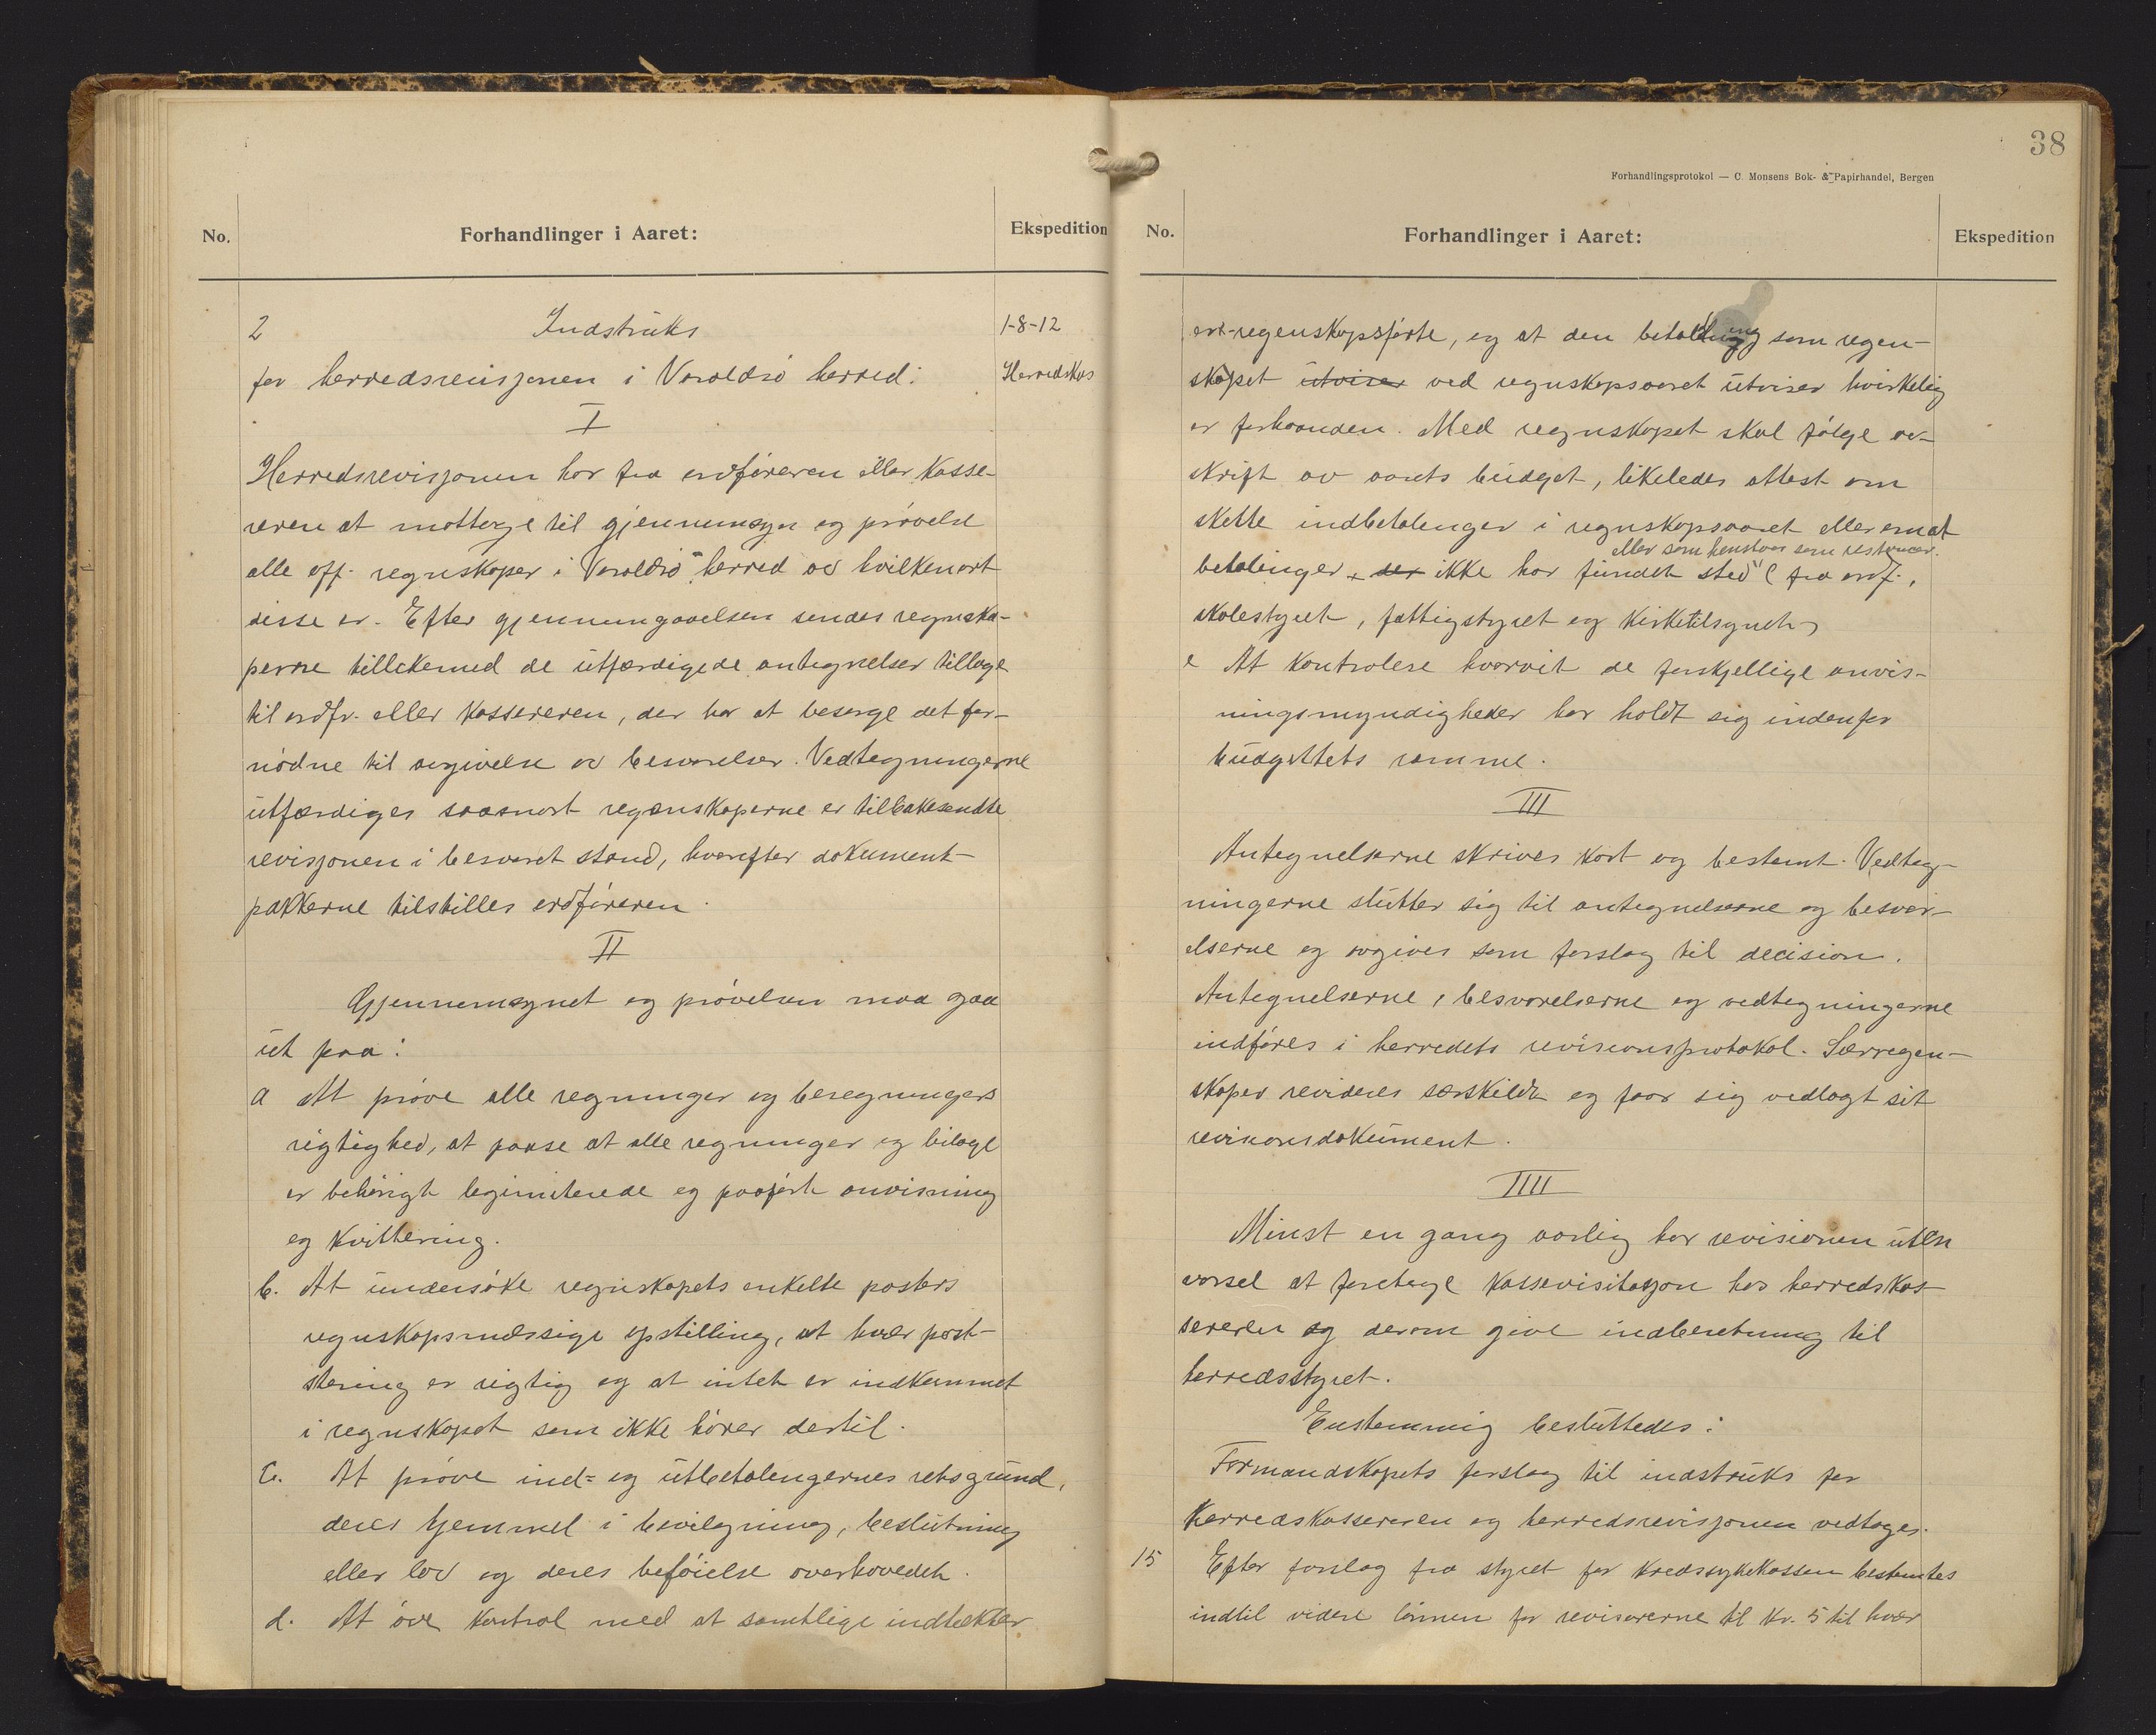 No.
Forhandlinger i Aaret:
Ekspedition
2
Indstruks
1-8-12
for herredsrevisjonen i Varaldsö herred:
Herredskas
I
Herredsrevisjonen har fra ordföreren eller kasse-
reren at mottage til gjennemsyn og prövelse
alle off. regnskaper i Varaldsö herred av hvilkenart
disse er. Efter gjennemgaaelsen sendes regnska-
perne tillikemed de utfærdigede antegnelser tilbage
til ordfr. eller kassereren, der har at besørge det for-
nödne til avgivelse av besvarelser. Vedtegningerne
utfærdiges saasnart regnskaperne er tilbakesendte
revisjonen i besvaret stand, hvorefter dokument-
pakkerne tilstilles ordföreren.
II
Gjennemsynet og prövelsen maa gaa
ut paa:
a At pröve alle regninger og beregningers
rigtighed, at paase at alle regninger og bilage
er behörigt legimiterede og paaført anvisning
og kvittering.
b. At undersöke regnskapets enkelte posters
regnskapsmæssige opstilling, at hver post-
stering er rigtig og at intet er indkommet
i regnskapet som ikke hörer dertil.
c. At pröve ind= og utbetalingernes retsgrund,
deres hjemmel i bevilgning, beslutning
eller lov og deres beföielse overhovedet.
d. At öve kontrol med at samtlige indtækter
38
Forhandlingsprotokol — C. Monsens Bok- & Papirhandel, Bergen
No.
Forhandlinger i Aaret:
Ekspedition
er regenskapsførte, og at den som regen-
skapet utviser ved regnskapsaaret utviser hvirkelig
er forhaanden. Med regnskapet skal fölge av-
skrift av aarets budget, likeledes attest om
skette indbetalinger i regnskapsaaret eller om at
eller som henstaar som restancer.
betalinger der ikke har fundet sted (fra ordf.,
skolestyret, fattigstyret og kirketilsynet)
e At kontrolere hvorvit de forskjellige anvis-
ningsmyndigheder har holdt sig indenfor
budgettets ramme.
III
Antegnelserne skrives kort og bestemt. Vedteg-
ningerne slutter sig til antegnelserne og besvar-
elserne og avgives som forslag til decision.
Antegnelserne, besvarelserne og vedtegningerne
indföres i herredets revisionsprotokol. Særregen-
skaper revideres særskildt og faar sig vedlagt sit
revisionsdokument.
IIII
Minst en gang aarlig har revisionen uten
varsel at foretage kassevisitasjon hos herredskas-
sereren og derom give indberetning til
herredsstyret.
Enstemmig besluttedes:
Formandskapets forslag til indstruks for
herredskassereren og herredsrevisjonen vedtages.
15
Efter forslag fra styret for kredssykekassen bestemtes
indtil videre lönnen for revisorerne til kr. 5 til hver